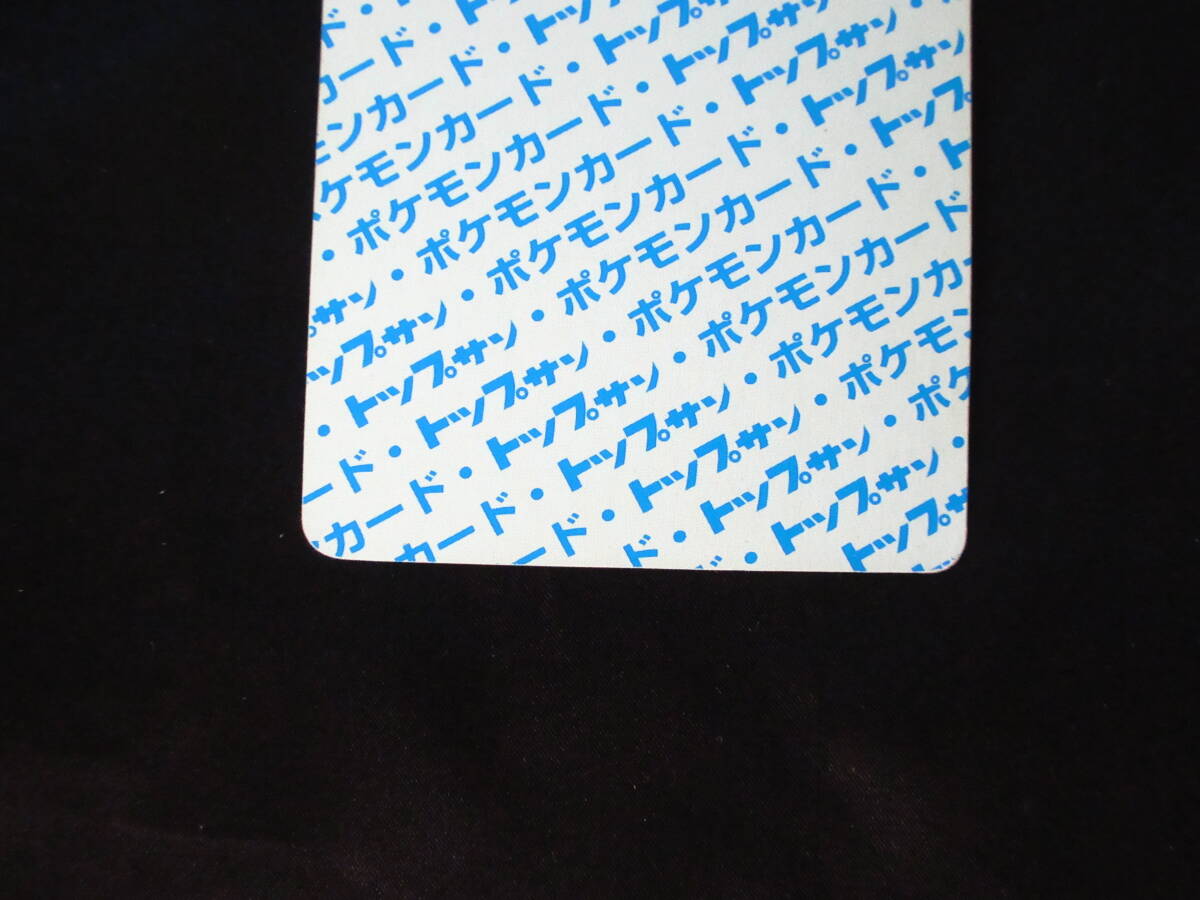 ド・
カード・ト
ンカード・トッ
ケモンカード・トップサ
・ポケモンカード・トップサン
サン・ポケモンカード・トップサン
ップサン・ポケモンカード・トップサン
・トップサン・ポケモンカード・トップ
ード・トップサン・ポケモンカード・ト
カード・トップサン・ポケモンカード
カード・トップサン・ポケモンカ
ード・トップサン・ポケモン
ド・トップサン・ポケ
・トップサン・
トップサ